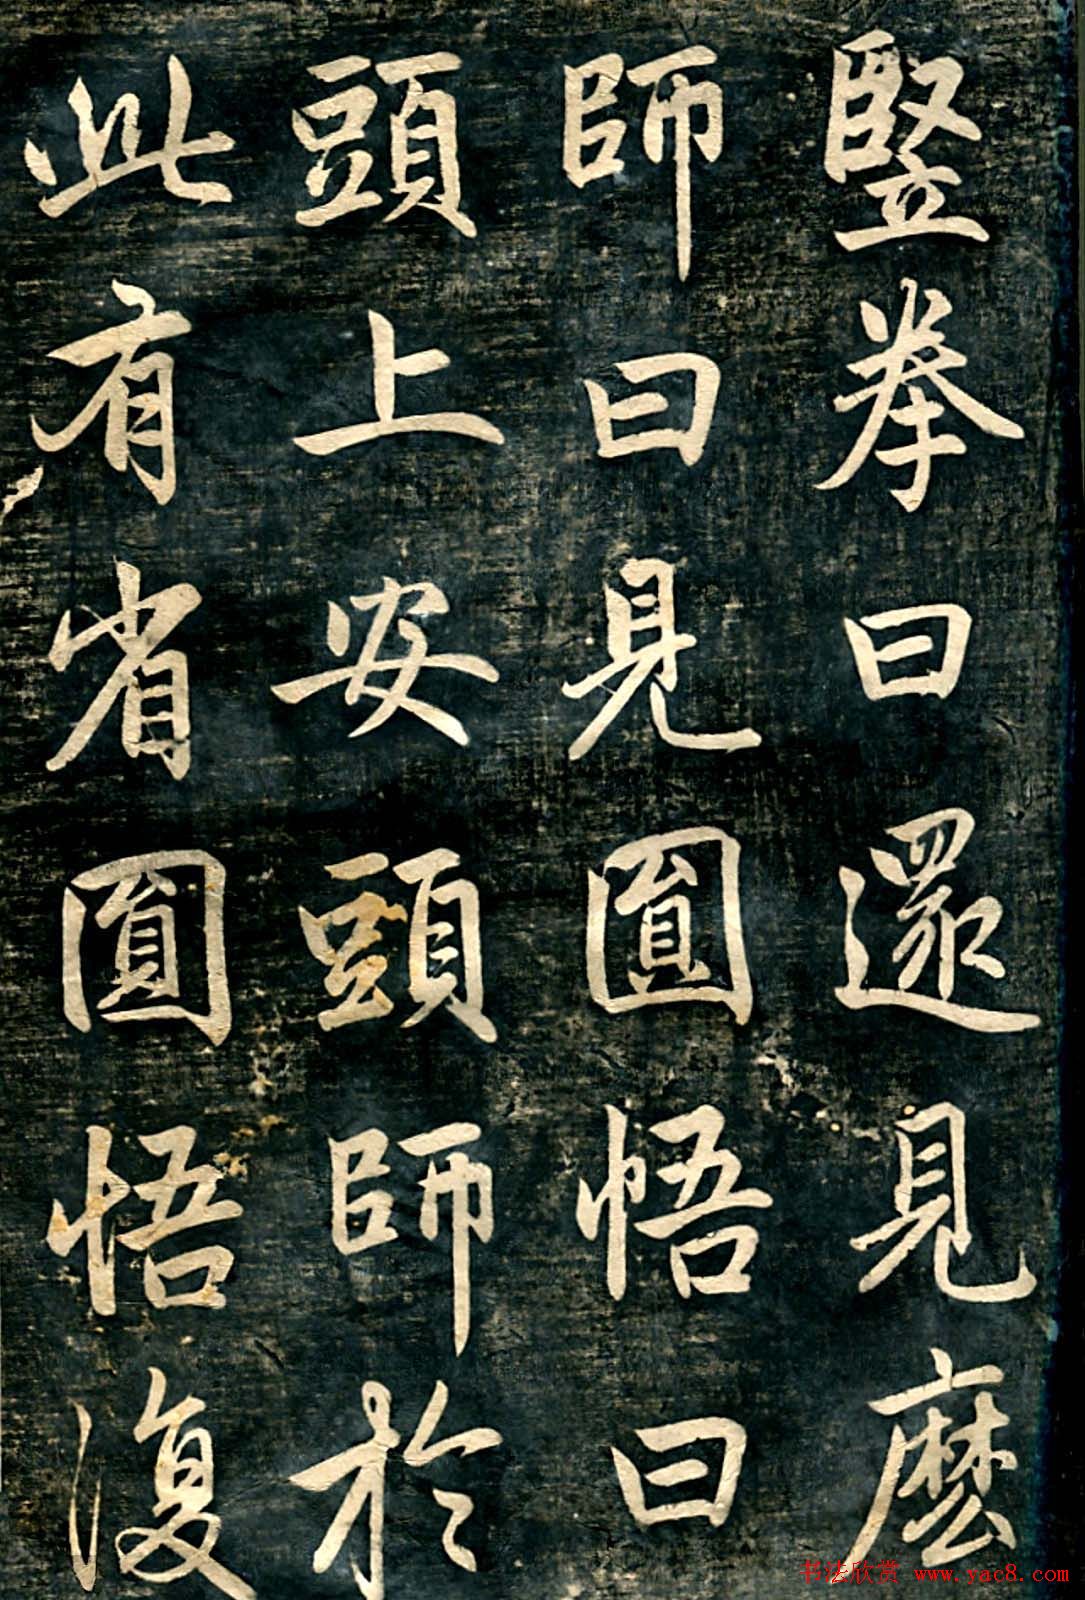 竪拳曰還見麽
師曰見圓悟曰
頭上安頭師於
此有省圓悟復
书法欣赏 www.yac8.com